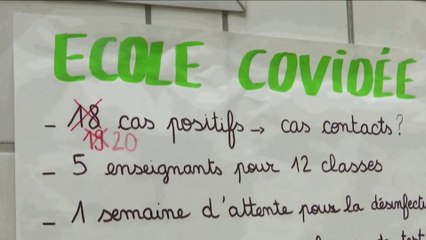 ECOLE COVIDÉE
- 18 cas positifs → cas contacts?
19 20
- 5 enseignants pour 12 classes
- 1 semaine d'attente pour la désinfect